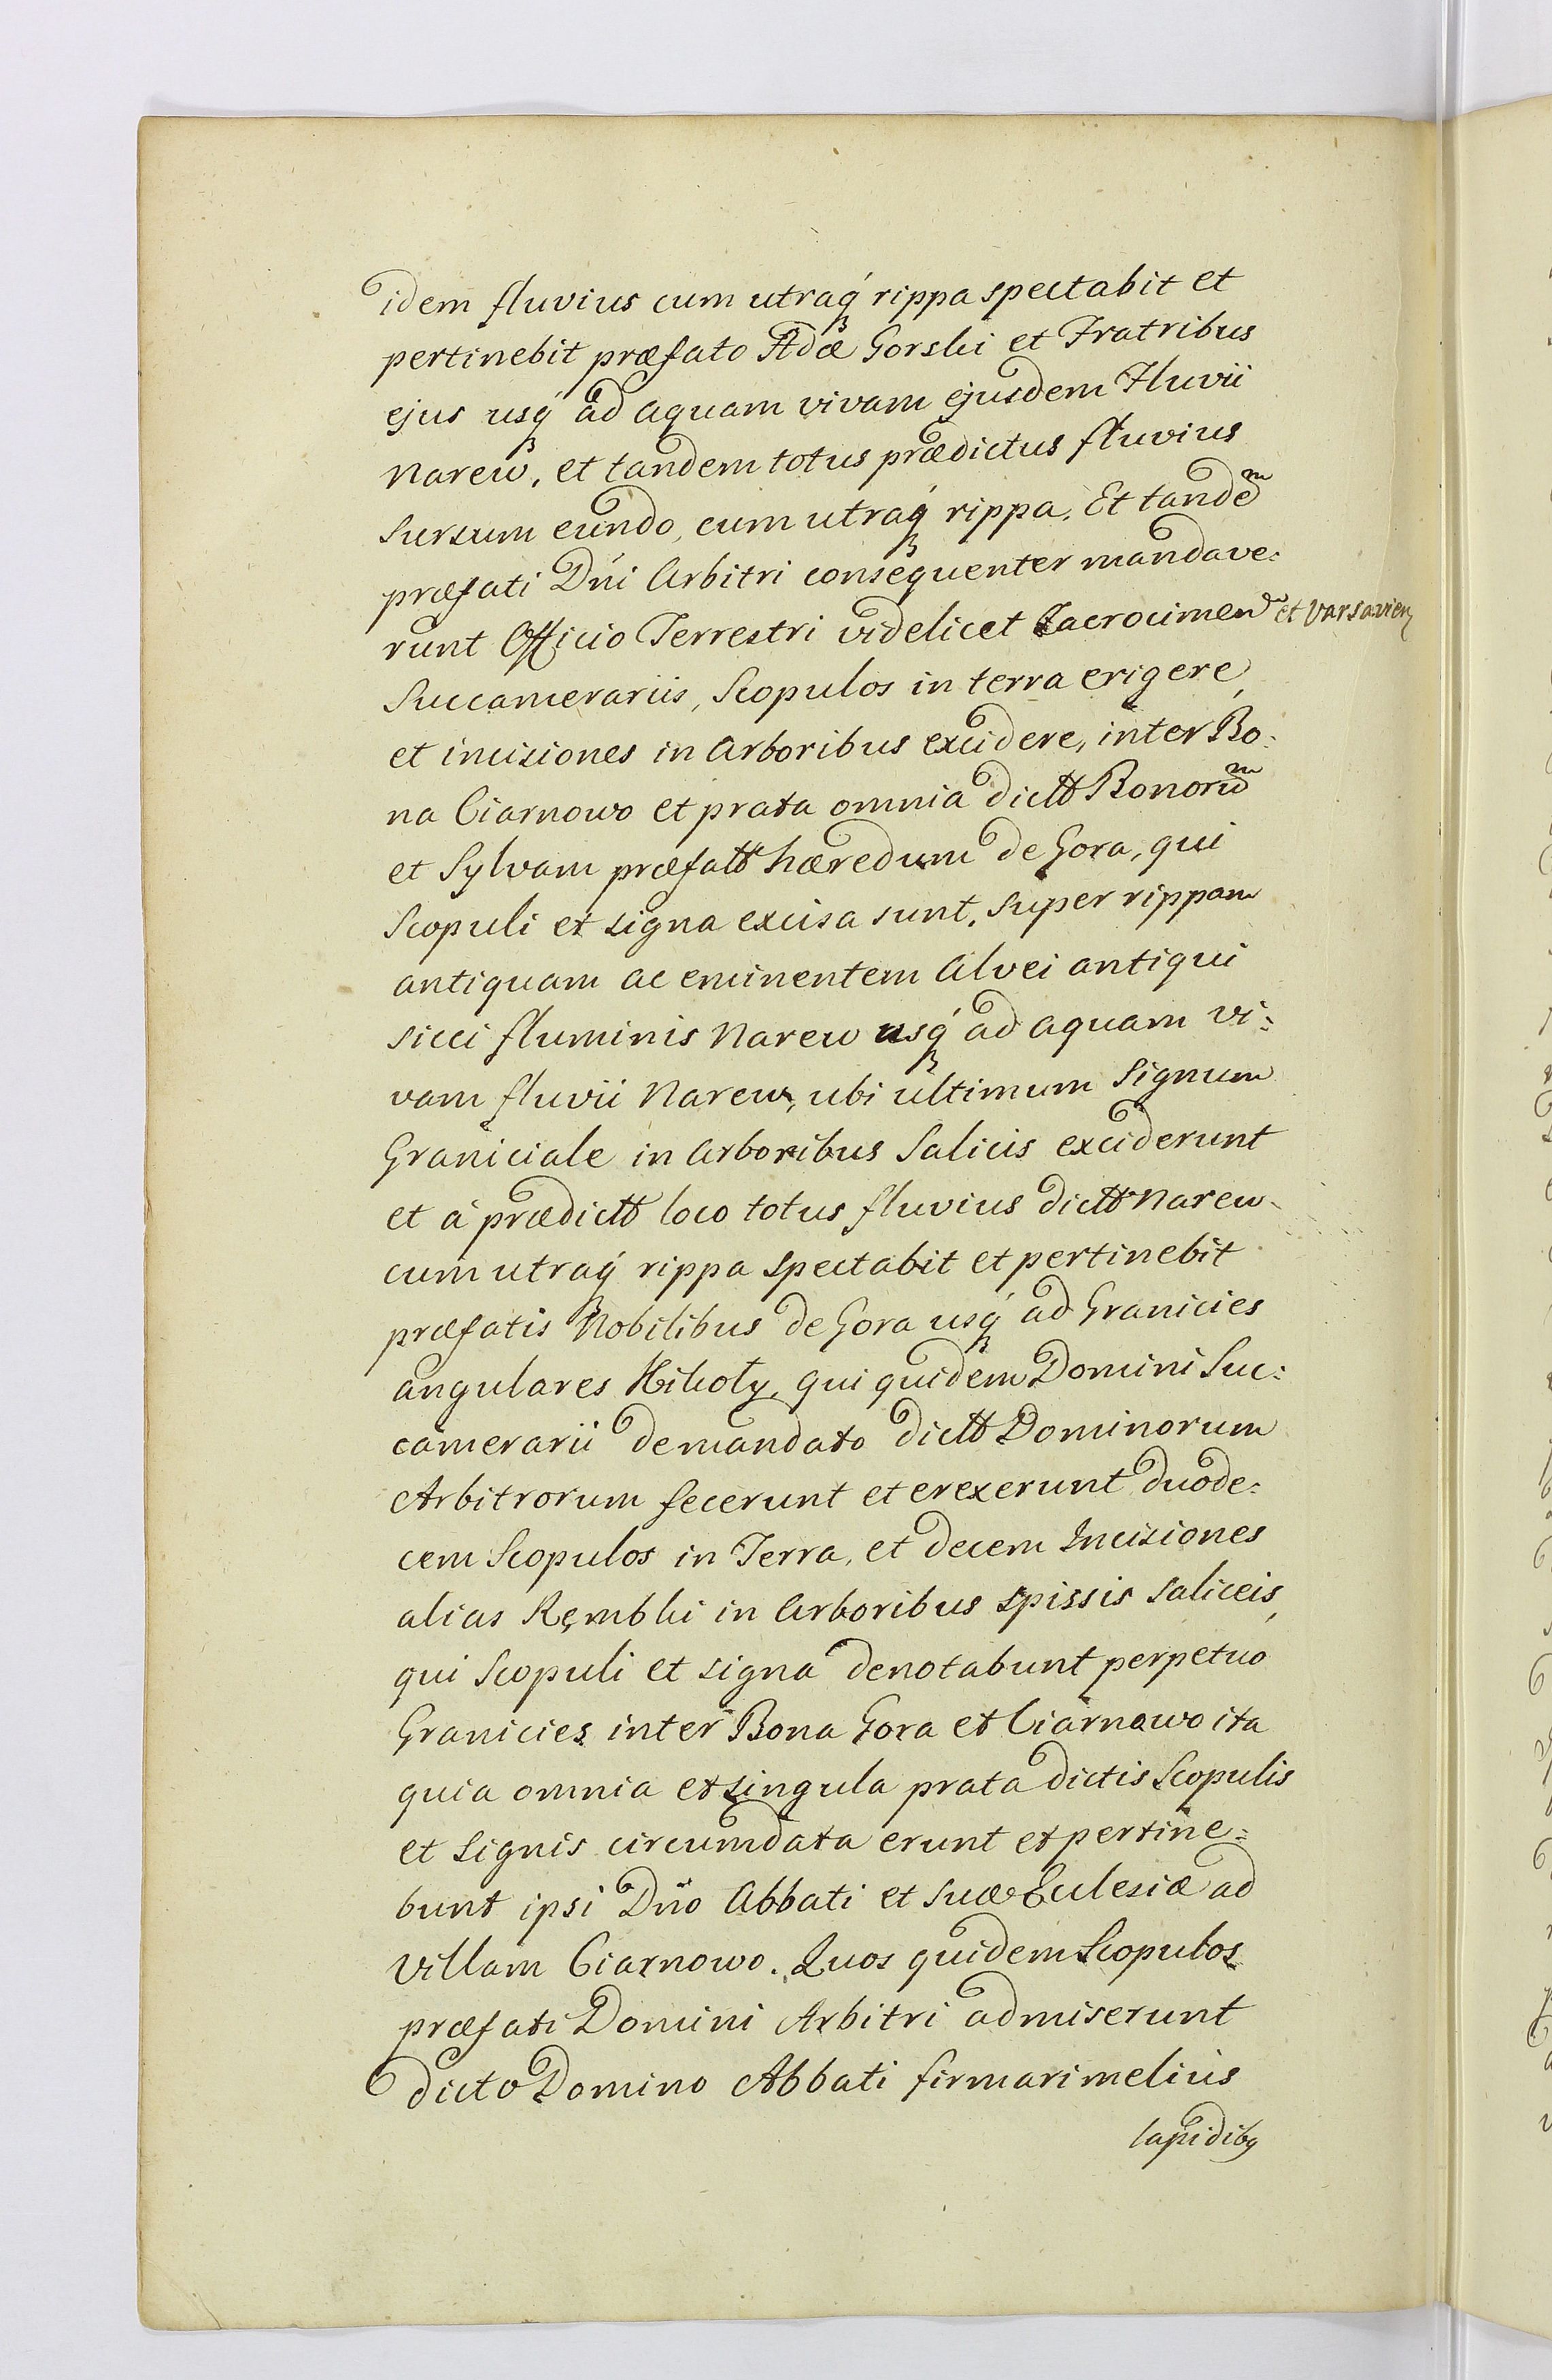 idem fluvius cum utraq́ꝫ rippa spectabit et
pertinebit præfato Adæ Gorski et Fratribus
ejus usq́ꝫ ad aquam vivam ejusdem Fluvii
Narew, et tandem totus prædictus fluvius
sursum eundo, cum utraq́ꝫ rippa. Et tandem̃
præfati Dńi Arbitri consequenter mandave:
runt Officio Terrestri videlicet Zacrocimen et Varsavien
Succamerariis, Scopulos in terra erigere,
et incisiones in Arboribus excidere, inter Bo:
na Czarnowo et prata omnia dictt Bonorum̃
et Sylvam præfatt hæredum de Gora, qui
Scopuli et signa excisa sunt, super rippam
antiquam ac eminentem Alvei antiqui
sicci fluminis Narew usq́ꝫ ad aquam vi:
vam fluvii Narew, ubi ultimum Signum
Graniciale in Arboribus Salicis exciderunt
et à prædictt loco totus fluvius dictt Narew
cum utraq́ꝫ rippa spectabit et pertinebit
præfatis Nobilibus de Gora usq́ꝫ ad Granicies
angulares Mikoły, qui quidem Domini Suc:
camerarii de mandato dictt Dominorum
Arbitrorum fecerunt et erexerunt duode:
cem Scopulos in Terra, et decem Incisiones
alias Ręmbki in Arboribus spissis saliceis,
qui Scopuli et signa denotabunt perpetuo
Granicies inter Bona Gora et Czarnowo ita
quia omnia et singula prata dictis Scopulis
et Signis circumdata erunt et pertine:
bunt ipsi Dńo Abbati et suæ Eclesiæ ad
Villam Czarnowo. Quos quidem Scopulos
præfati Domini Arbitri admiserunt
dicto Domino Abbati firmari melius
lapidibꝯ